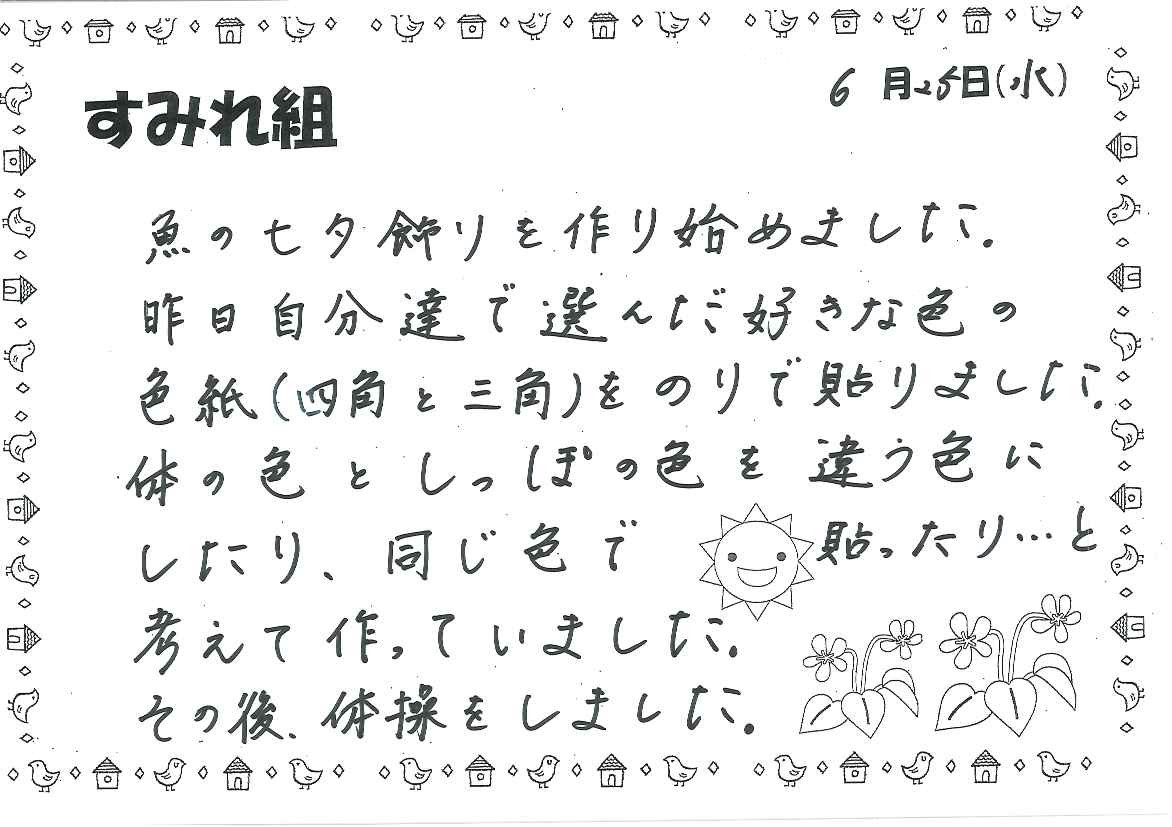 すみれ組
6月25日(水)
魚の七夕飾りを作り始めました。
昨日自分達で選んだ好きな色の
色紙(四角と三角)をのりで貼りました。
体の色としっぽの色を違う色に
したり、同じ色で貼ったり…と
考えて作っていました。
その後、体操をしました。